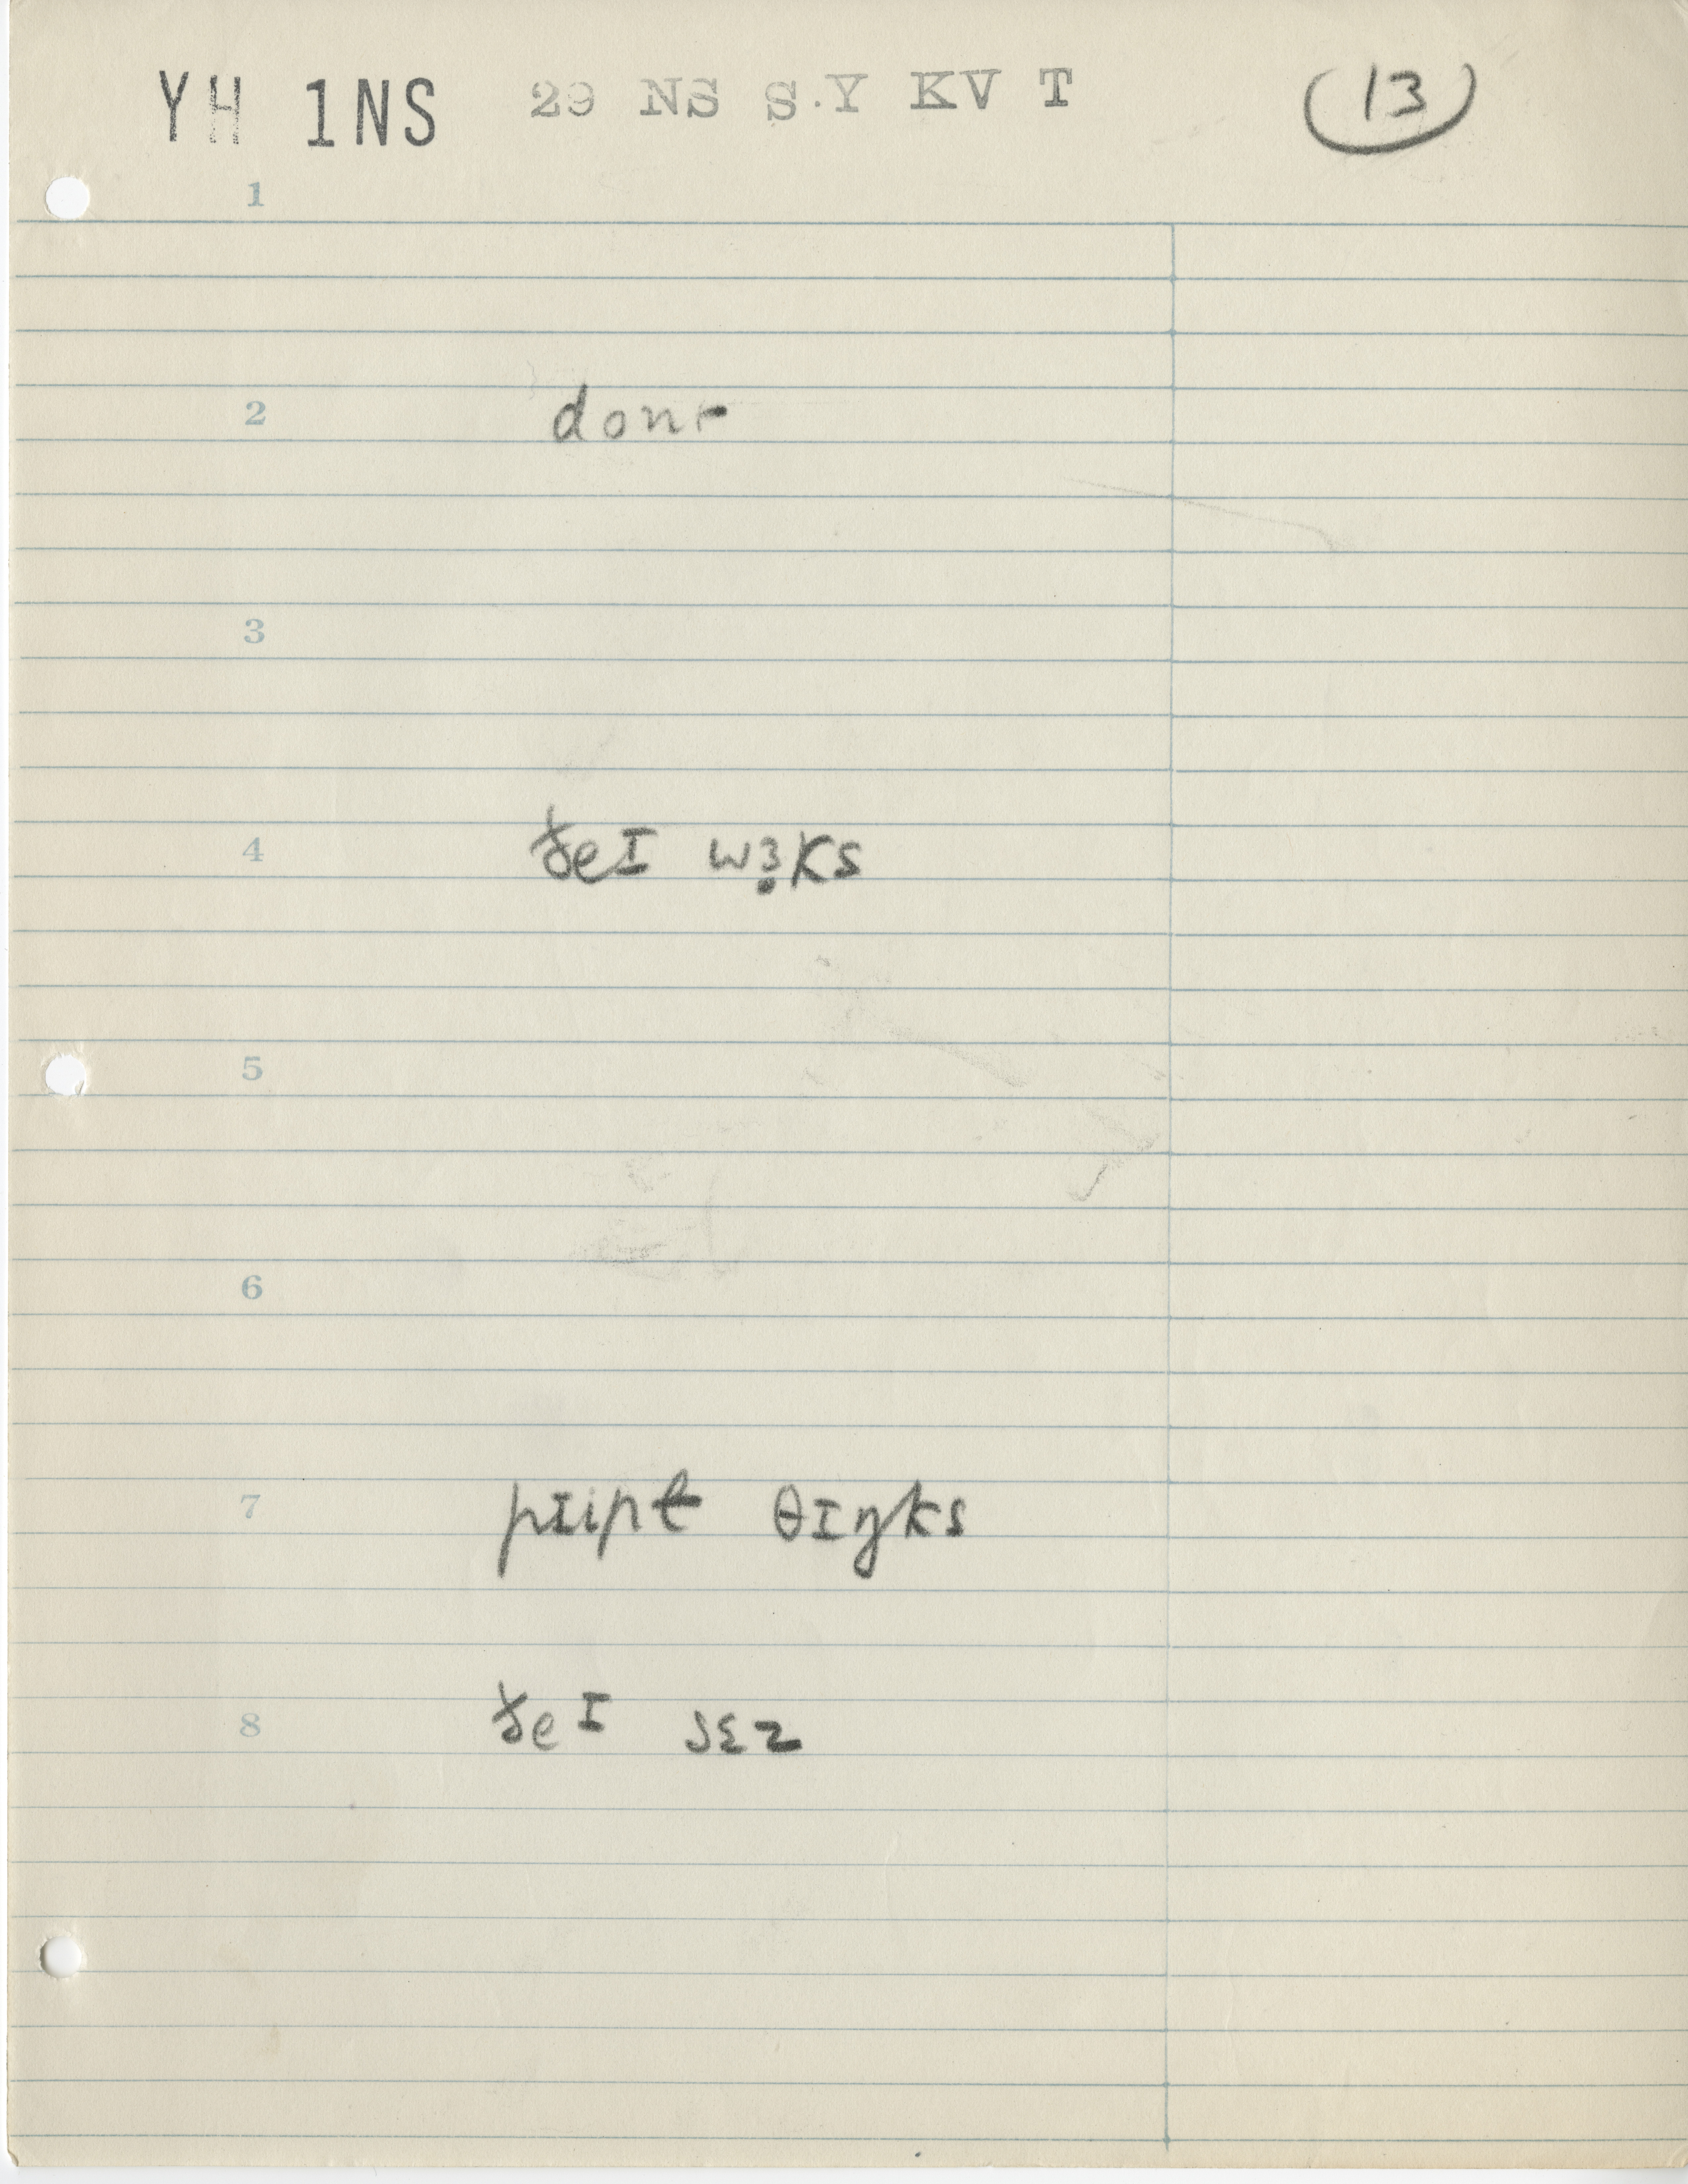 YH 1NS 29 NS S.Y KV T 13
1
2 dont
3
4 ðeɪ wɜ̣ks
5
6
7 pɪipḷ θɪŋks
8 ðeɪ sɛz